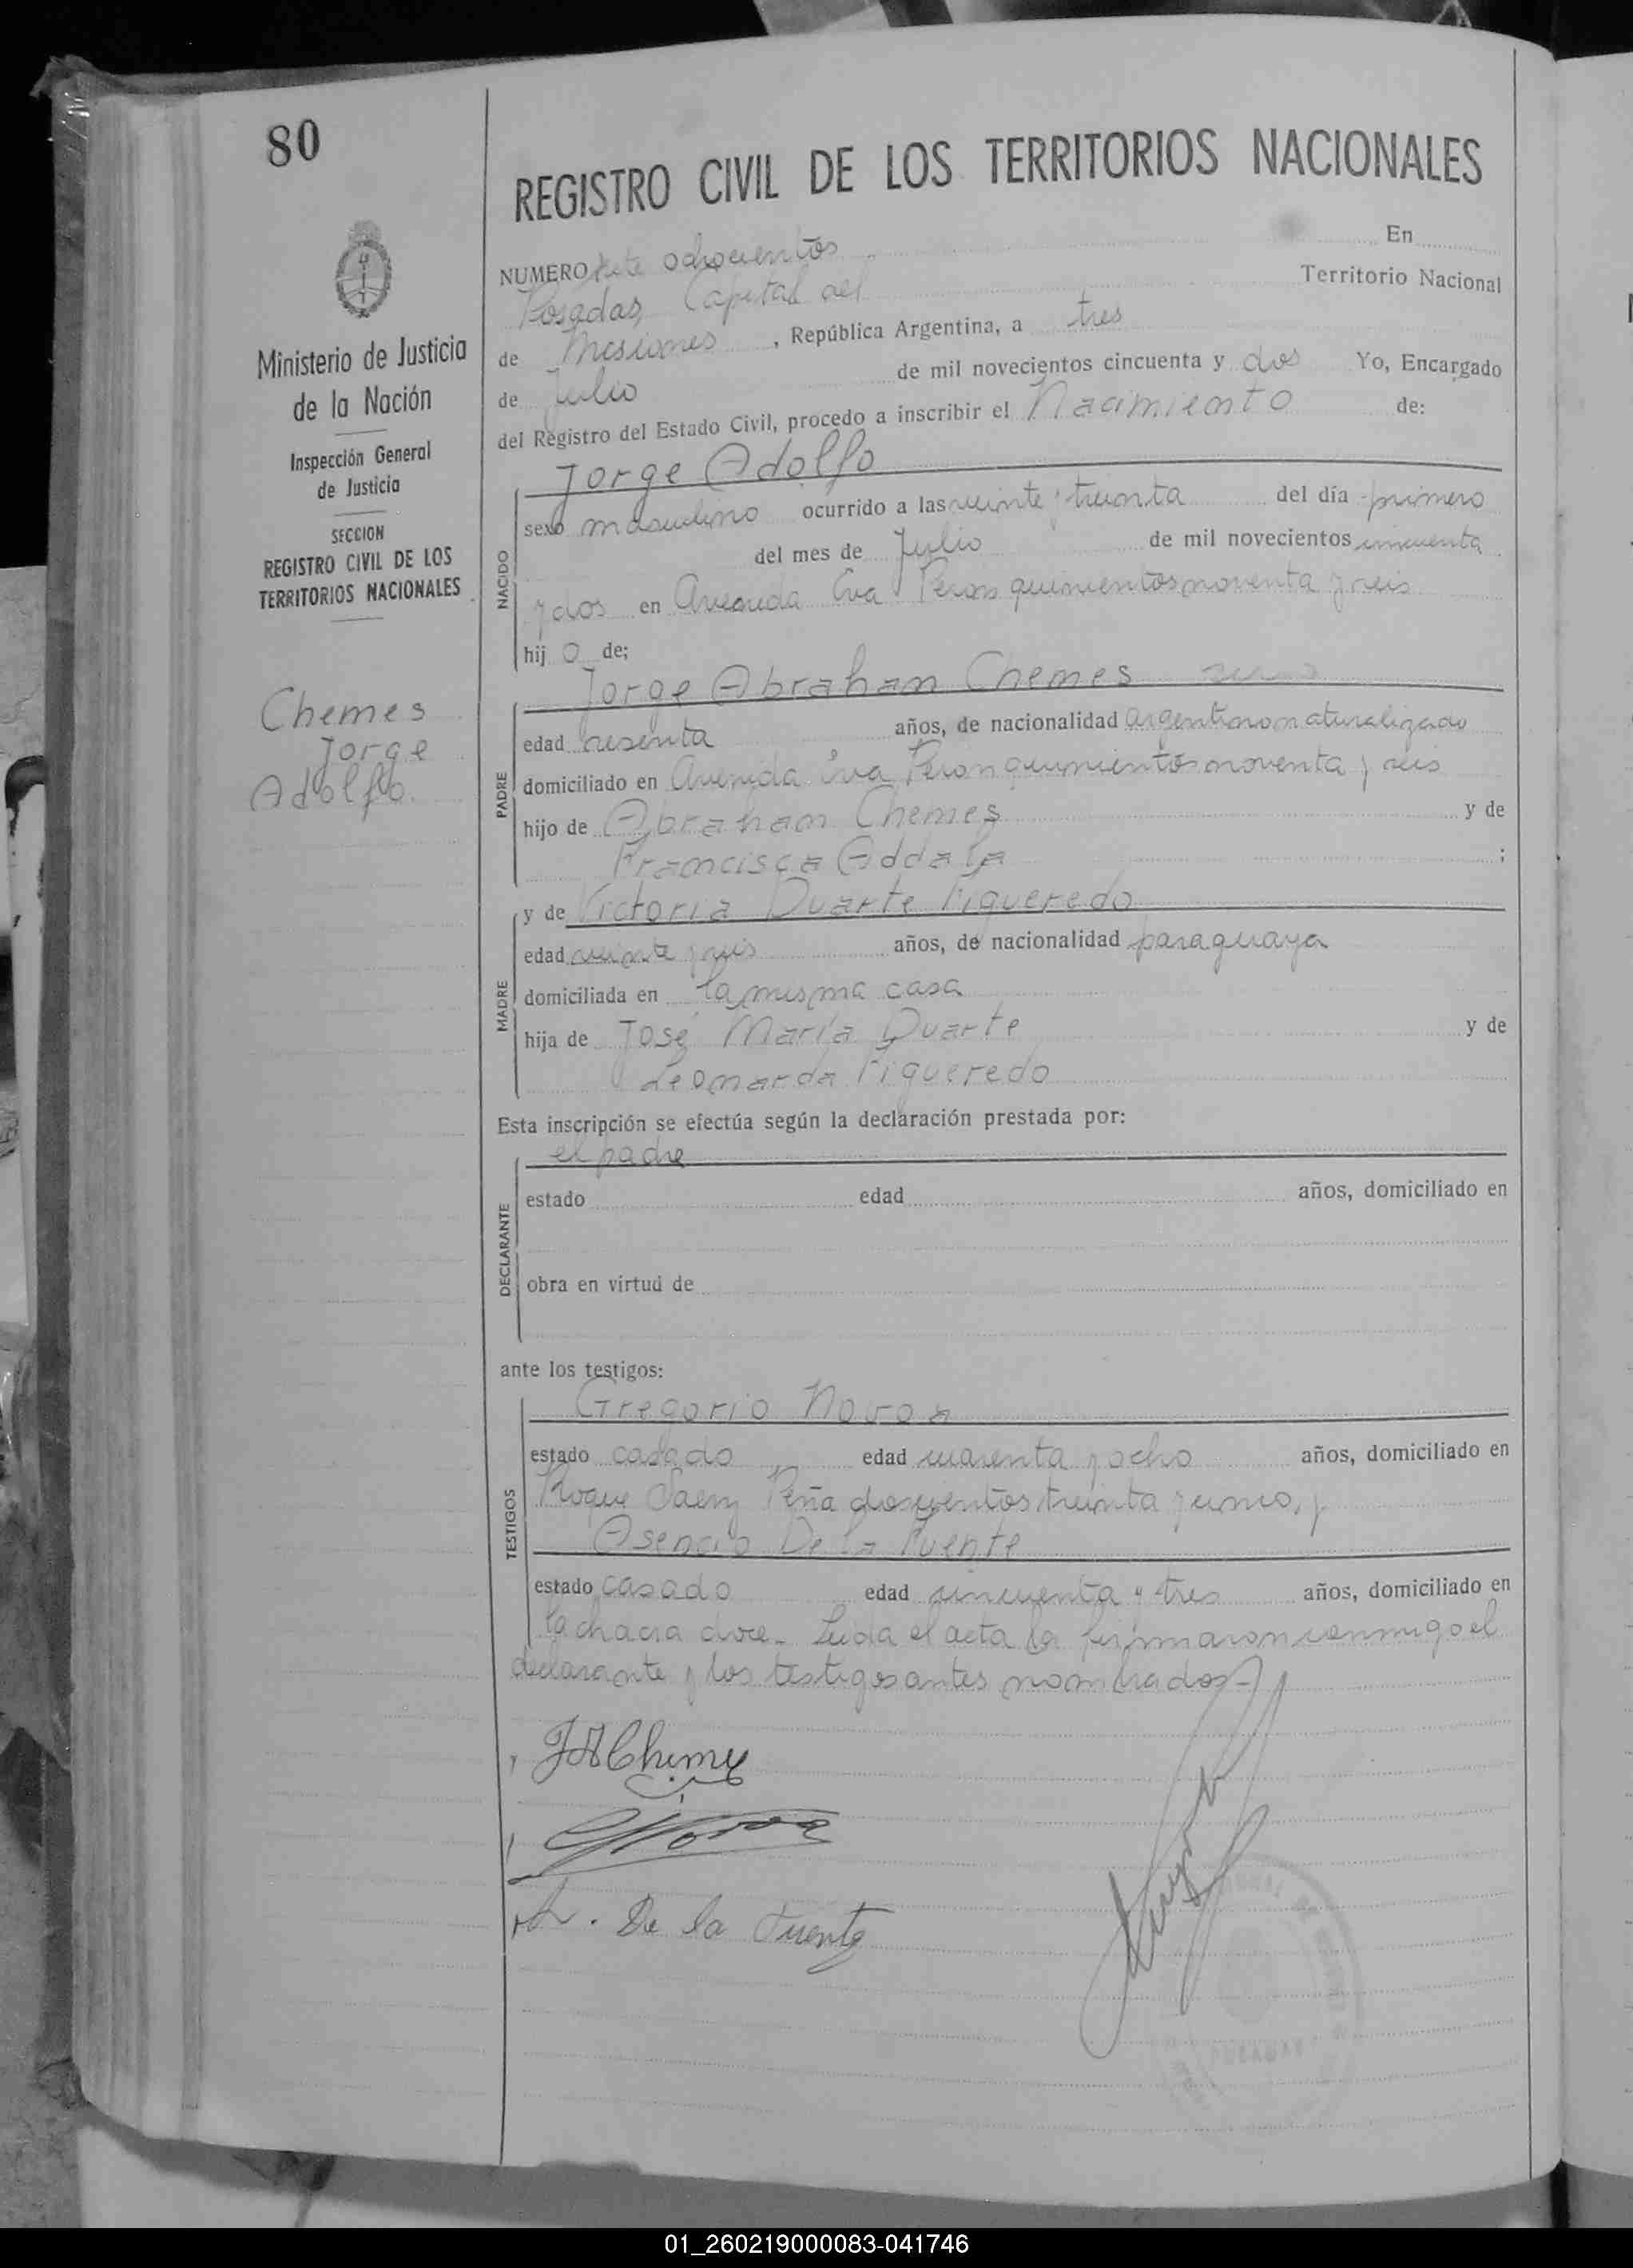 80
REGISTRO CIVIL DE LOS TERRITORIOS NACIONALES
Ministerio de Justicia
de la Nación
Inspección General
de Justicia
SECCION
REGISTRO CIVIL DE LOS
TERRITORIOS NACIONALES
Chemes
Jorge
Adolfo.
NUMERO ochocientos En
Posadas, Capital del Territorio Nacional
de Misiones, República Argentina, a tres
de Julio de mil novecientos cincuenta y dos Yo, Encargado
del Registro del Estado Civil, procedo a inscribir el Nacimiento de:
NACIDO
Jorge Adolfo
sexo masculino ocurrido a las veinte y treinta del día primero
del mes de Julio de mil novecientos cincuenta
y dos en Avenida Eva Peron quinientos noventa y seis
hij o de;
PADRE
Jorge Abraham Chemes
edad sesenta años, de nacionalidad argentino naturalizado
domiciliado en Avenida Eva Peron quinientos noventa y seis
hijo de Abraham Chemes y de
Francisca Addala ;
MADRE
y de Victoria Duarte Figueredo
edad veinte y seis años, de nacionalidad paraguaya
domiciliada en la misma casa
hija de José María Duarte y de
Leonarda Figueredo
Esta inscripción se efectúa según la declaración prestada por:
DECLARANTE
el padre
estado edad años, domiciliado en
obra en virtud de
ante los testigos:
TESTIGOS
Gregorio Novoa
estado casado edad cuarenta y ocho años, domiciliado en
Roque Saenz Peña doscientos treinta y cinco, y
Asencio De la Fuente
estado casado edad cincuenta y tres años, domiciliado en
la chacra doce.- Leida el acta la firmaron conmigo el
declarante y los testigos antes nombrados.-
JAChemes
GNovoa
A. De la Fuente
POSADAS
01_260219000083-041746